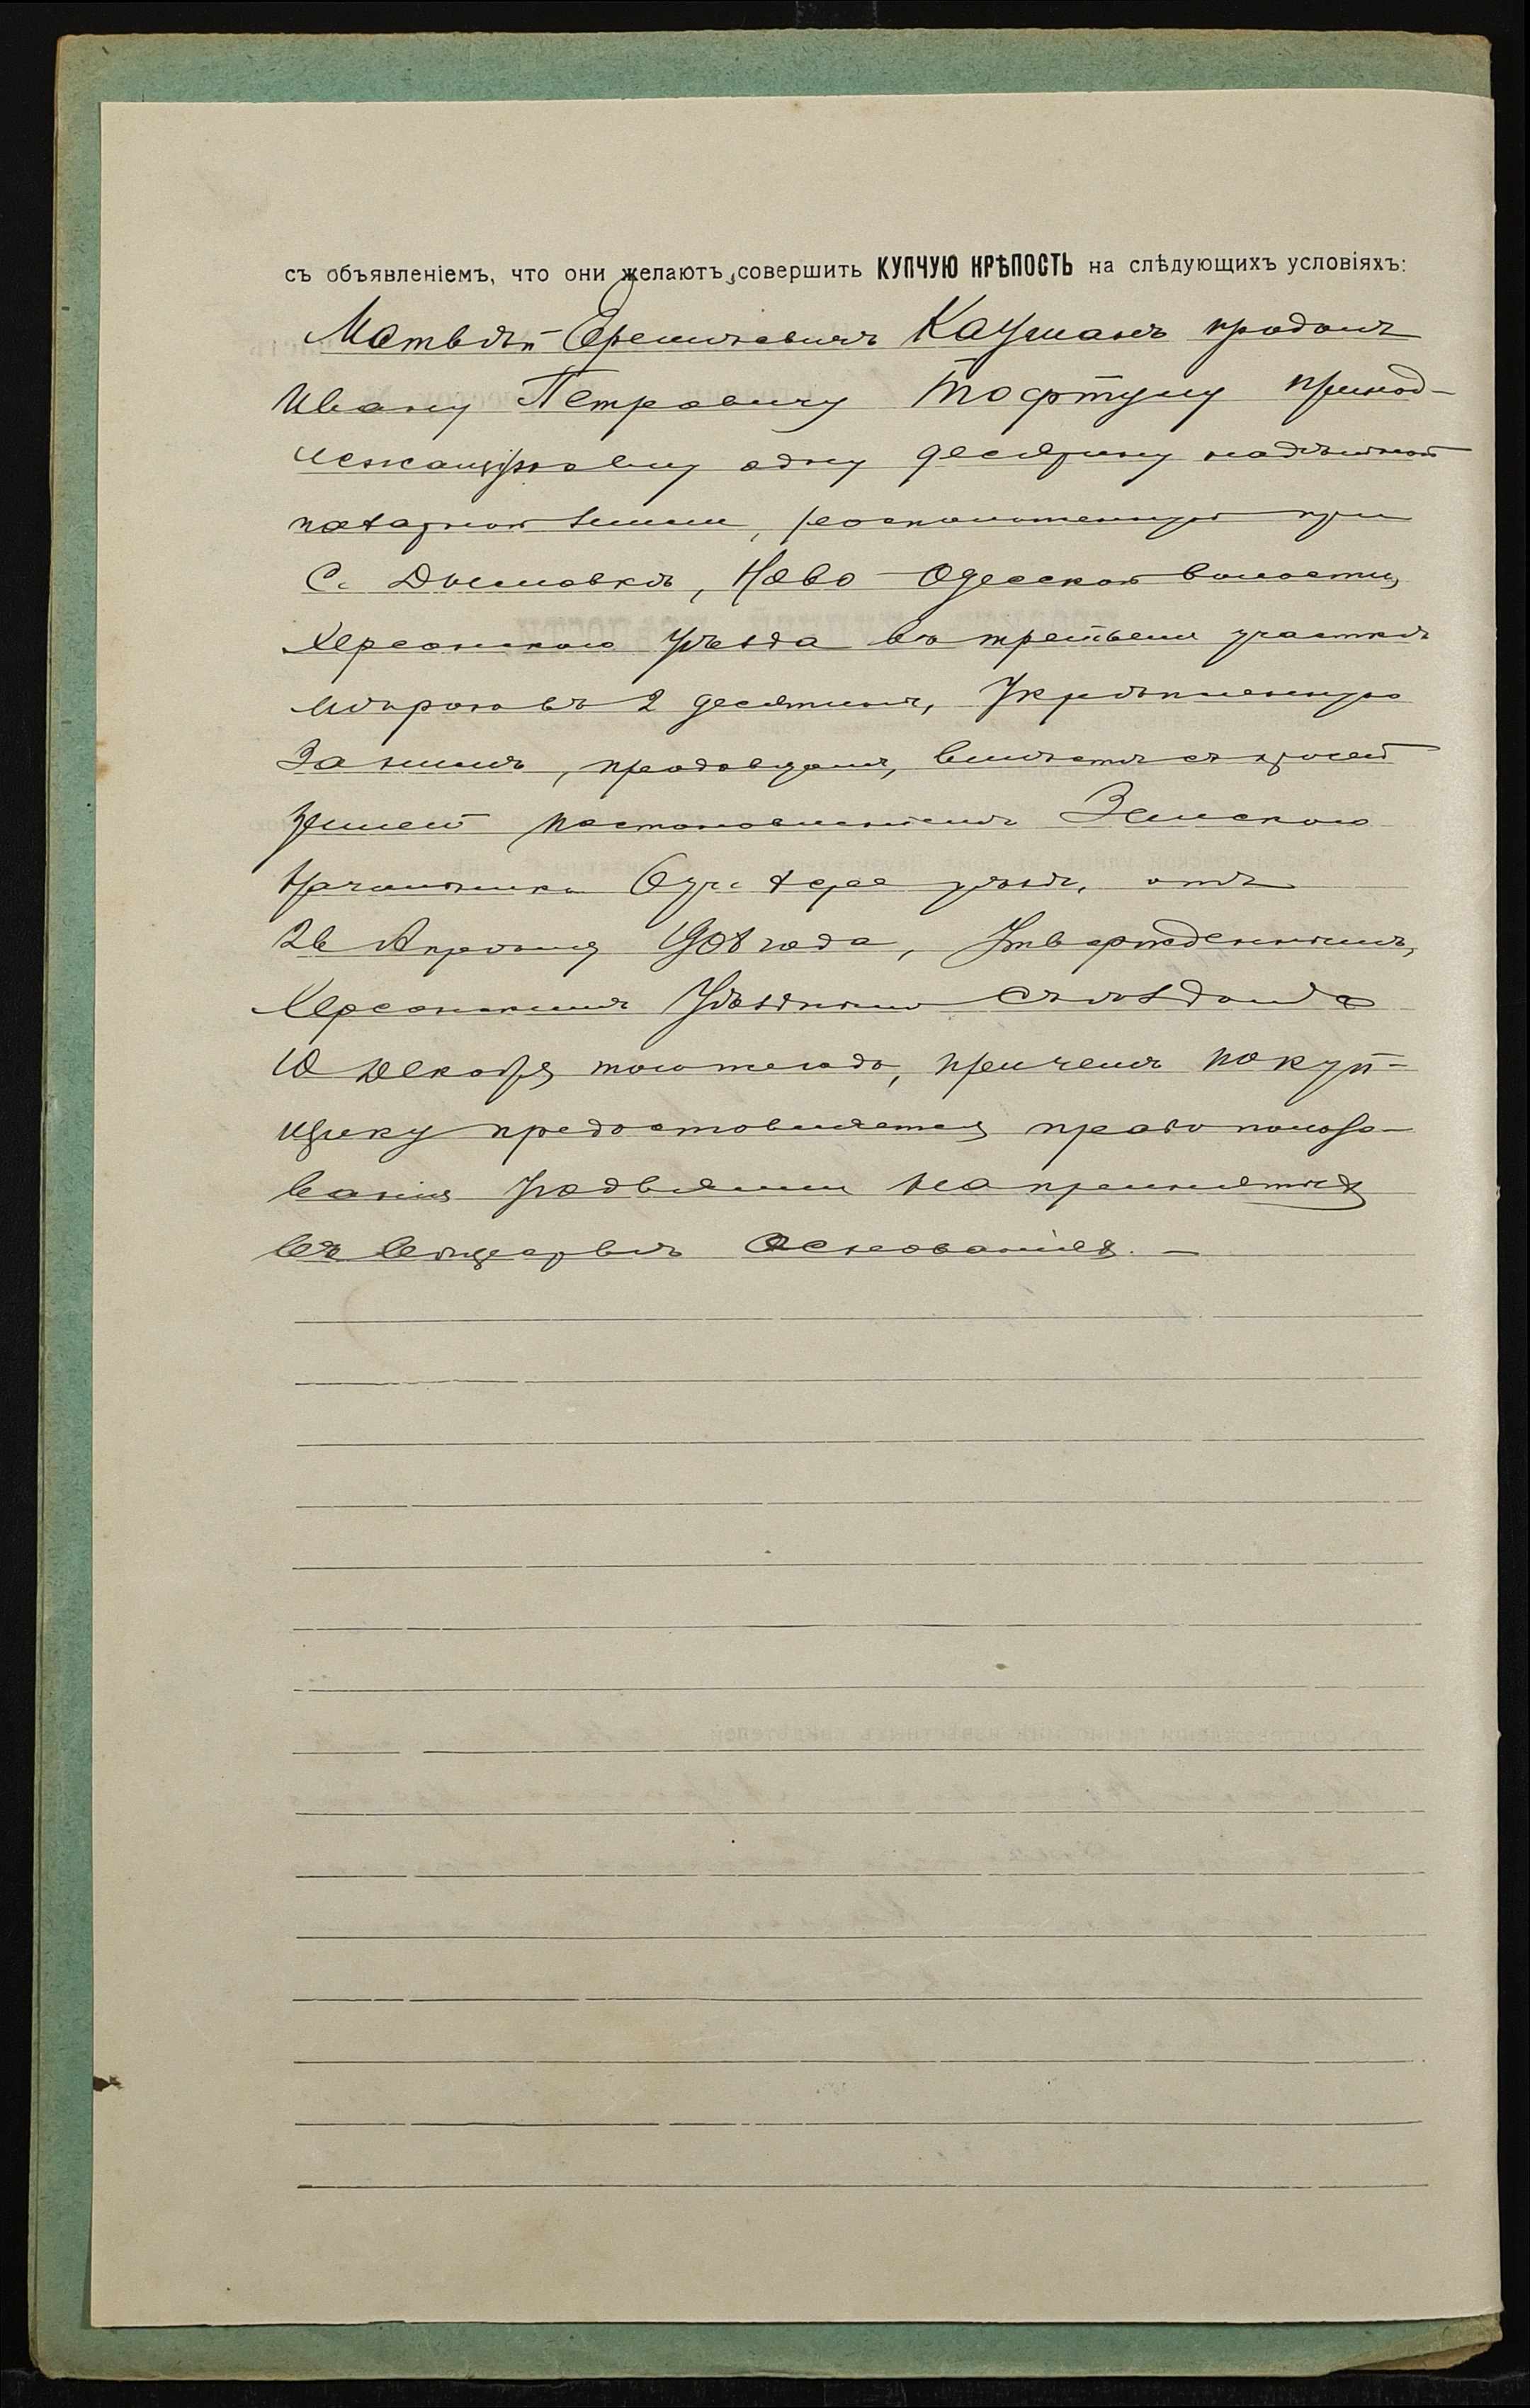 съ объявленіемъ, что они желаютъ совершить КУПЧУЮ КРѢПОСТЬ на слѣдующихъ условіяхъ:
Матвѣй Еремѣевичъ Кауманъ продалъ
Ивану Петровичу Тофтулу принад-
лежащую ему одну десятину надѣльной
пахатной земли, расположенную при
С. Дымовкѣ, Ново-Одесской волости,
Херсонскаго уѣзда въ третьемъ участкѣ
мѣрою въ 2 десятины, укрѣпленную
За нимъ, продавцомъ, вмѣстѣ съ
землей постановленіемъ Земскаго
Начальника 6 уч. Херс уѣзда, отъ
26 Апрѣля 1908 года, Утвержденнымъ,
Херсонскимъ Уѣзднымъ Съѣздомъ
10 Декабря того же года, причемъ покуп-
щику предоставляется право пользо-
ванія угодьями на
въ основаніяхъ. —